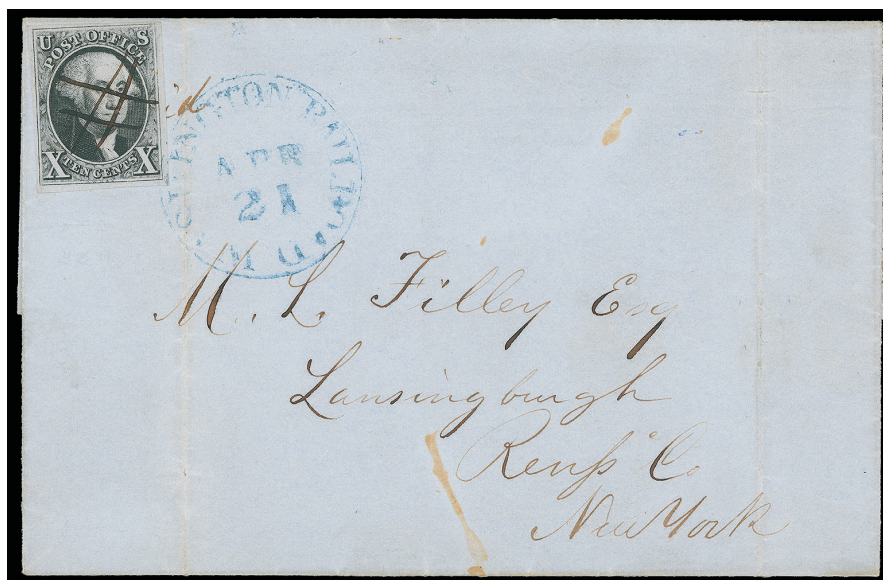 U S
POST OFFICE
X TEN CENTS X
APR
21
M. L. Filley Esq
Lansingburgh
Renss Co
New York